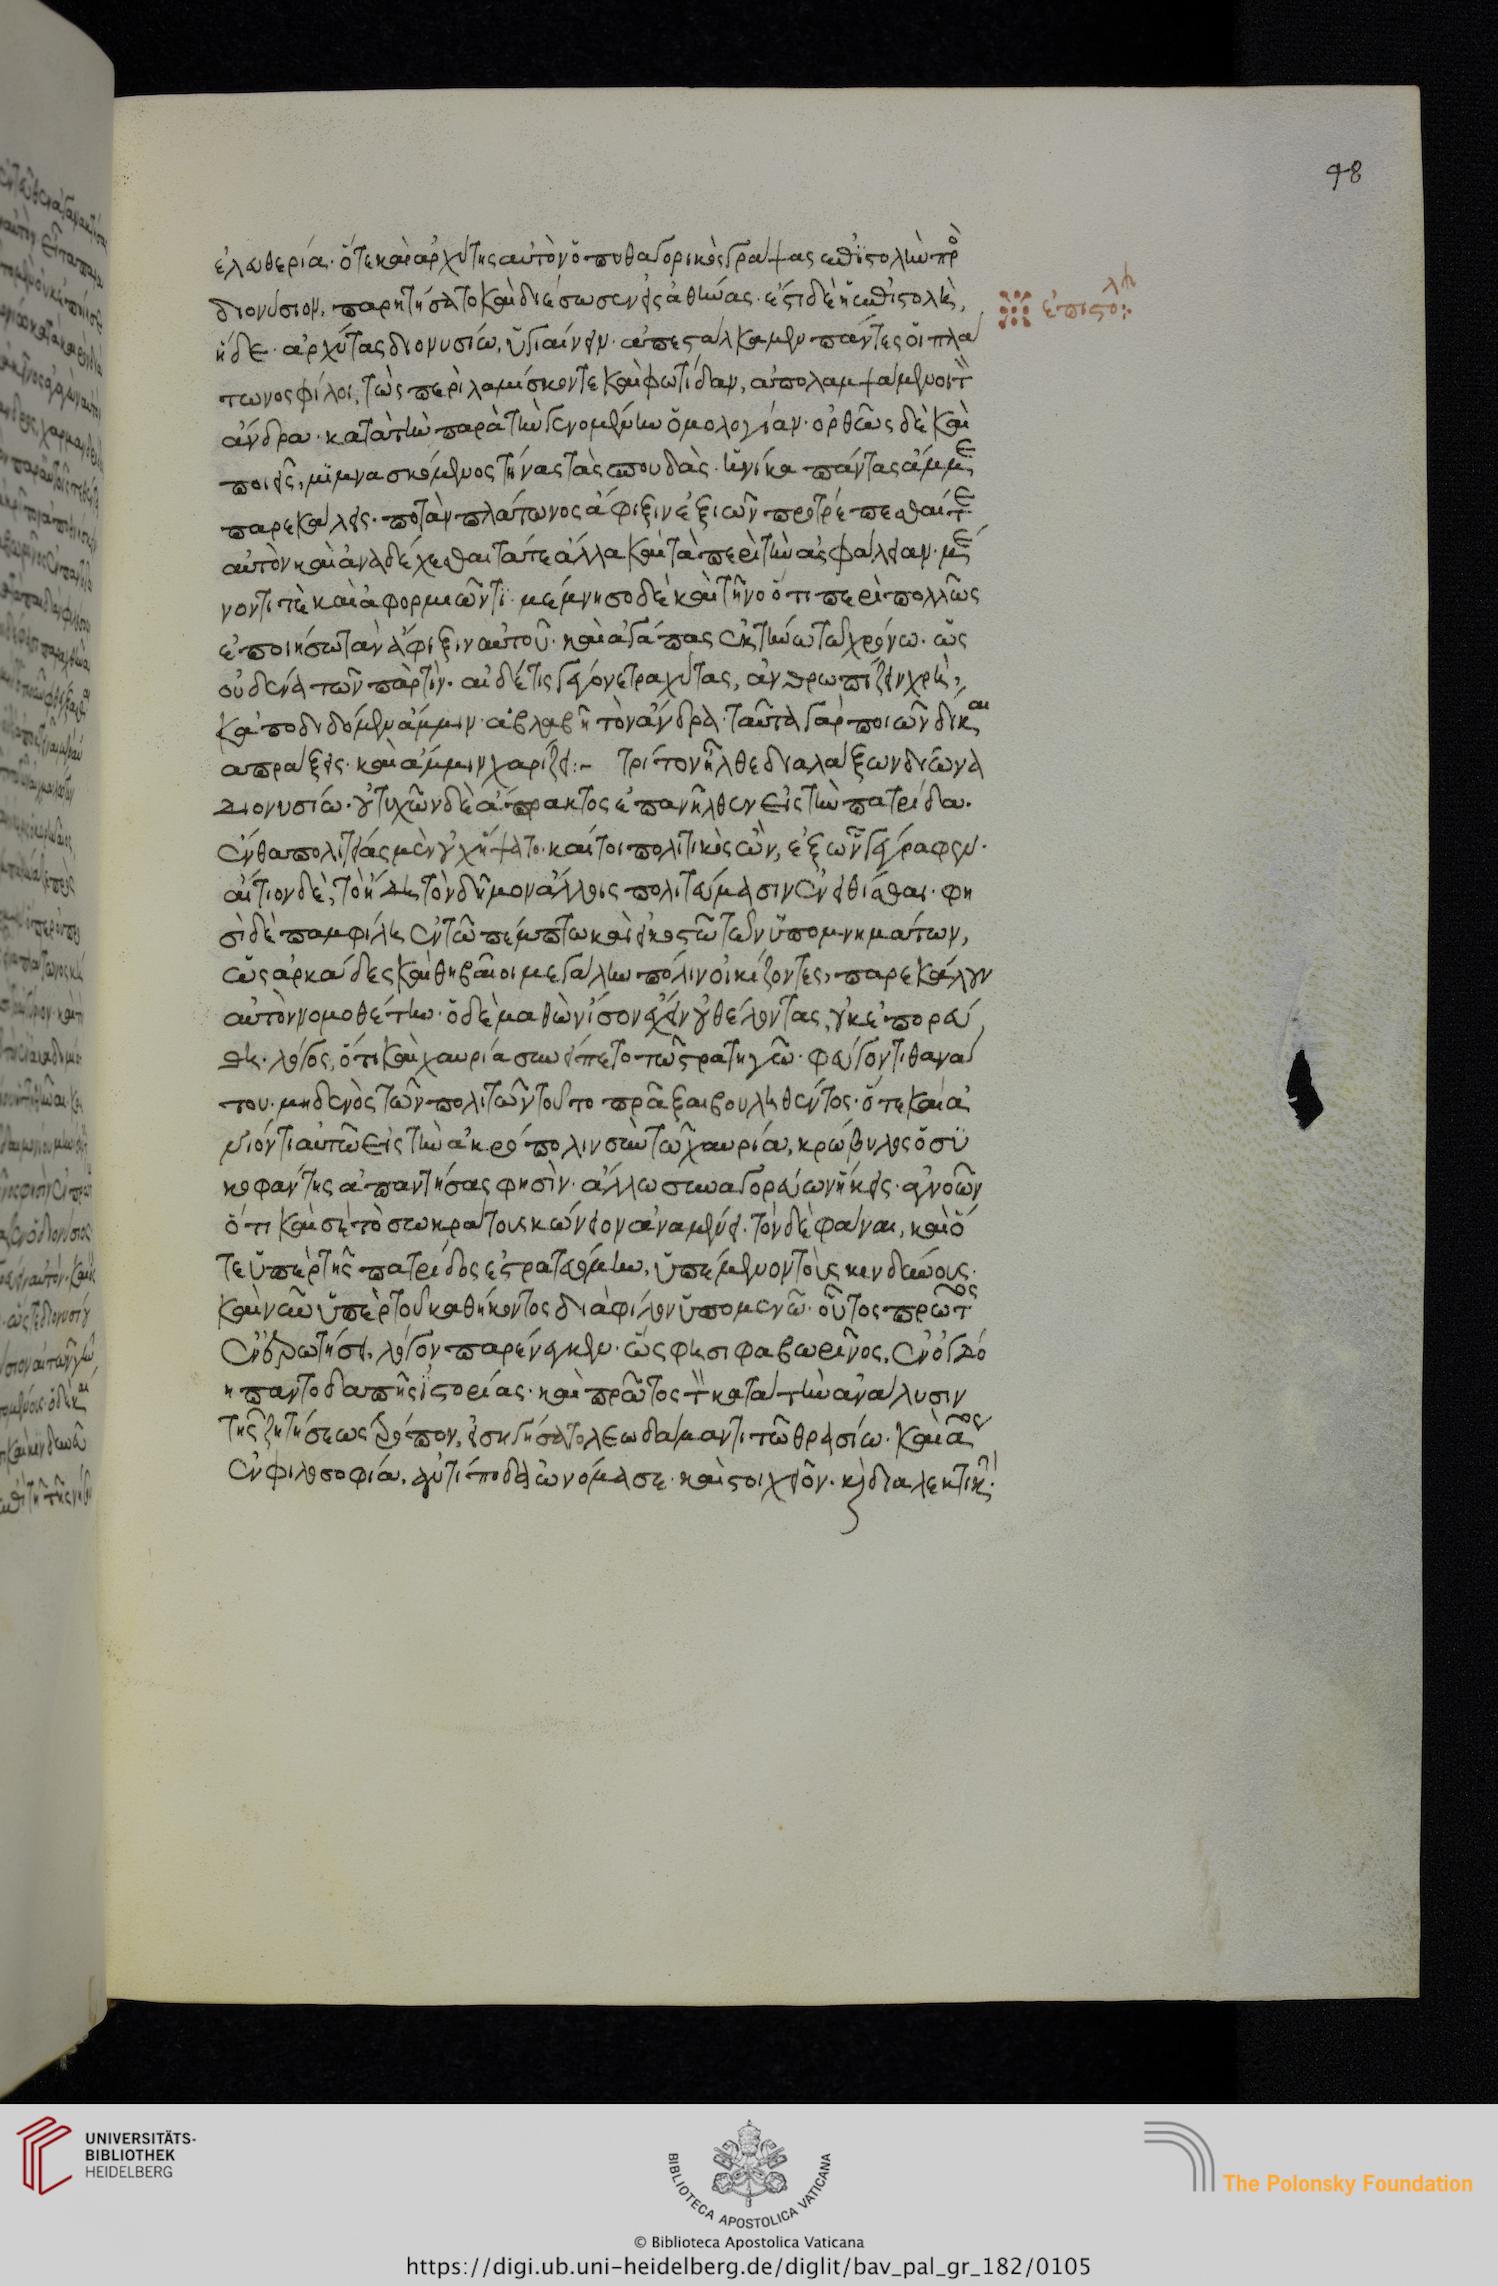 98
ἐλευθερία· ὅτε καὶ ἀρχύτης αὐτὸν ὁ πυθαγορικὸς γράψας ἐπιστολὴν πρὸ
διονύσιον, παρητήσατο καὶ διέσωσεν εἰς ἀθήνας. ἔστι δὲ ἡ ἐπιστολὴ,
ἥδε· ἀρχύτας διονυσίω, ὑγιαίνειν. ἀπεστάλκαμεν πάντες οἱ πλά
τωνος φίλοι, τὼς περὶ λαμίσκον τε καὶ φωτίδαν, ἀπολαμψαμένοι τὸν
ἄνδρα· κατὰ τὴν παρὰ τὴν γενομένην ὁμολογίαν· ὀρθῶς δὲ καὶ
ποιεῖς, μιμνασκόμενος τήνας τὰς σπουδὰς· ἡνίκα πάντας ἄμμε
παρεκάλεις· ποτὰν πλάτωνος ἄφιξιν ἐξιῶν προτρέπεσθαί τε
αὐτὸν καὶ ἀναδέχεσθαι τά τε ἄλλα καὶ τὰ περὶ τὴν ἀσφάλειαν· μέ
νοντι τὲ καὶ ἀφορμιῶντι· μέμνησο δὲ καὶ τῆνο ὅτι περὶ πολλῶς
ἐποιήσω τὰν ἄφιξιν αὐτοῦ· καὶ ἀγάπας ἐκ τήνω τῶ χρόνω· ὡς
οὐδενά τῶν πὰρ τὶν· αἰ δέ τις γέγονε τραχύτας, ἀνθρωπίζειν χρὴ,
κἀποδιδόμεν ἄμμιν· ἀβλαβῆ τὸν ἄνδρα· ταῦτα γάρ ποιῶν δίκαι
α πράξεις· καὶ ἄμμιν χαρίζει:– τρίτον ἦλθε διαλάξων δίωνα
διονυσίω· οὐ τυχὼν δὲ ἄπρακτος ἐπανῆλθεν εἰς τὴν πατρίδα.
ἔνθα πολιτείας μὲν οὐχ ἥψατο· καίτοι πολιτικὸς ὢν, ἐξ ὧν γέγραφεν·
αἴτιον δὲ, τὸ ἤδη τὸν δῆμον ἄλλοις πολιτεύμασιν ἐνειθίσθαι· φη
σὶ δὲ παμφίλη ἐν τῶ πέμπτω καὶ εἰκοστῶ τῶν ὑπομνημάτων,
ὡς ἀρκάδες καὶ θηβαῖοι μεγάλην πόλιν οἰκίζοντες, παρεκάλουν
αὐτὸν νομοθέτην· ὁ δὲ μαθὼν ἴσον ἔχειν οὐ θέλοντας, οὐκ ἐπορεύ
θη· λόγος, ὅτι καὶ χαυρία συνείπετο τῶ στρατηγῶ· φεύγοντι θανά
του· μηδενὸς τῶν πολιτῶν τοῦτο πρᾶξαι βουληθέντος· ὅτε καὶ ἀ
νιόντι αὐτῶ εἰς τὴν ἀκρόπολιν σὺν τῶ χαυρία, κρώβυλος ὁ συ
κοφάντης ἀπαντήσας φησὶν· ἄλλω συναγορεύων ἥκεις· ἀγνοῶν
ὅτι καὶ σὲ τὸ σωκράτους κώνειον ἀναμένει. τόν δὲ φάναι, καὶ ὅ
τε ὑπὲρ τῆς πατρίδος ἐστρατευόμην, ὑπέμενον τοὺς κινδύνους.
καὶ νῦν ὑπὲρ τοῦ καθήκοντος διὰ φίλον ὑπομενῶ· οὗτος πρῶτος
ἐν ἐρωτήσει, λόγον παρένεγκεν· ὥς φησι φαβωρῖνος, ἐν ὀγδό
η παντοδαπῆς ἱστορίας· καὶ πρῶτος τὸν κατὰ τὴν ἀνάλυσιν
τῆς ζητήσεως τρόπον, εἰσηγήσατο λεωδάμαντι τῶ θρασίω· καὶ πρῶτος
ἐν φιλοσοφία, ἀντίποδα ὠνόμασε· καὶ στοιχεῖον· κὶ διαλεκτικὴν·
ἐπιστολὴ:
UNIVERSITÄTS-
BIBLIOTHEK
HEIDELBERG
BIBLIOTECA APOSTOLICA VATICANA
The Polonsky Foundation
© Biblioteca Apostolica Vaticana
https://digi.ub.uni-heidelberg.de/diglit/bav_pal_gr_182/0105